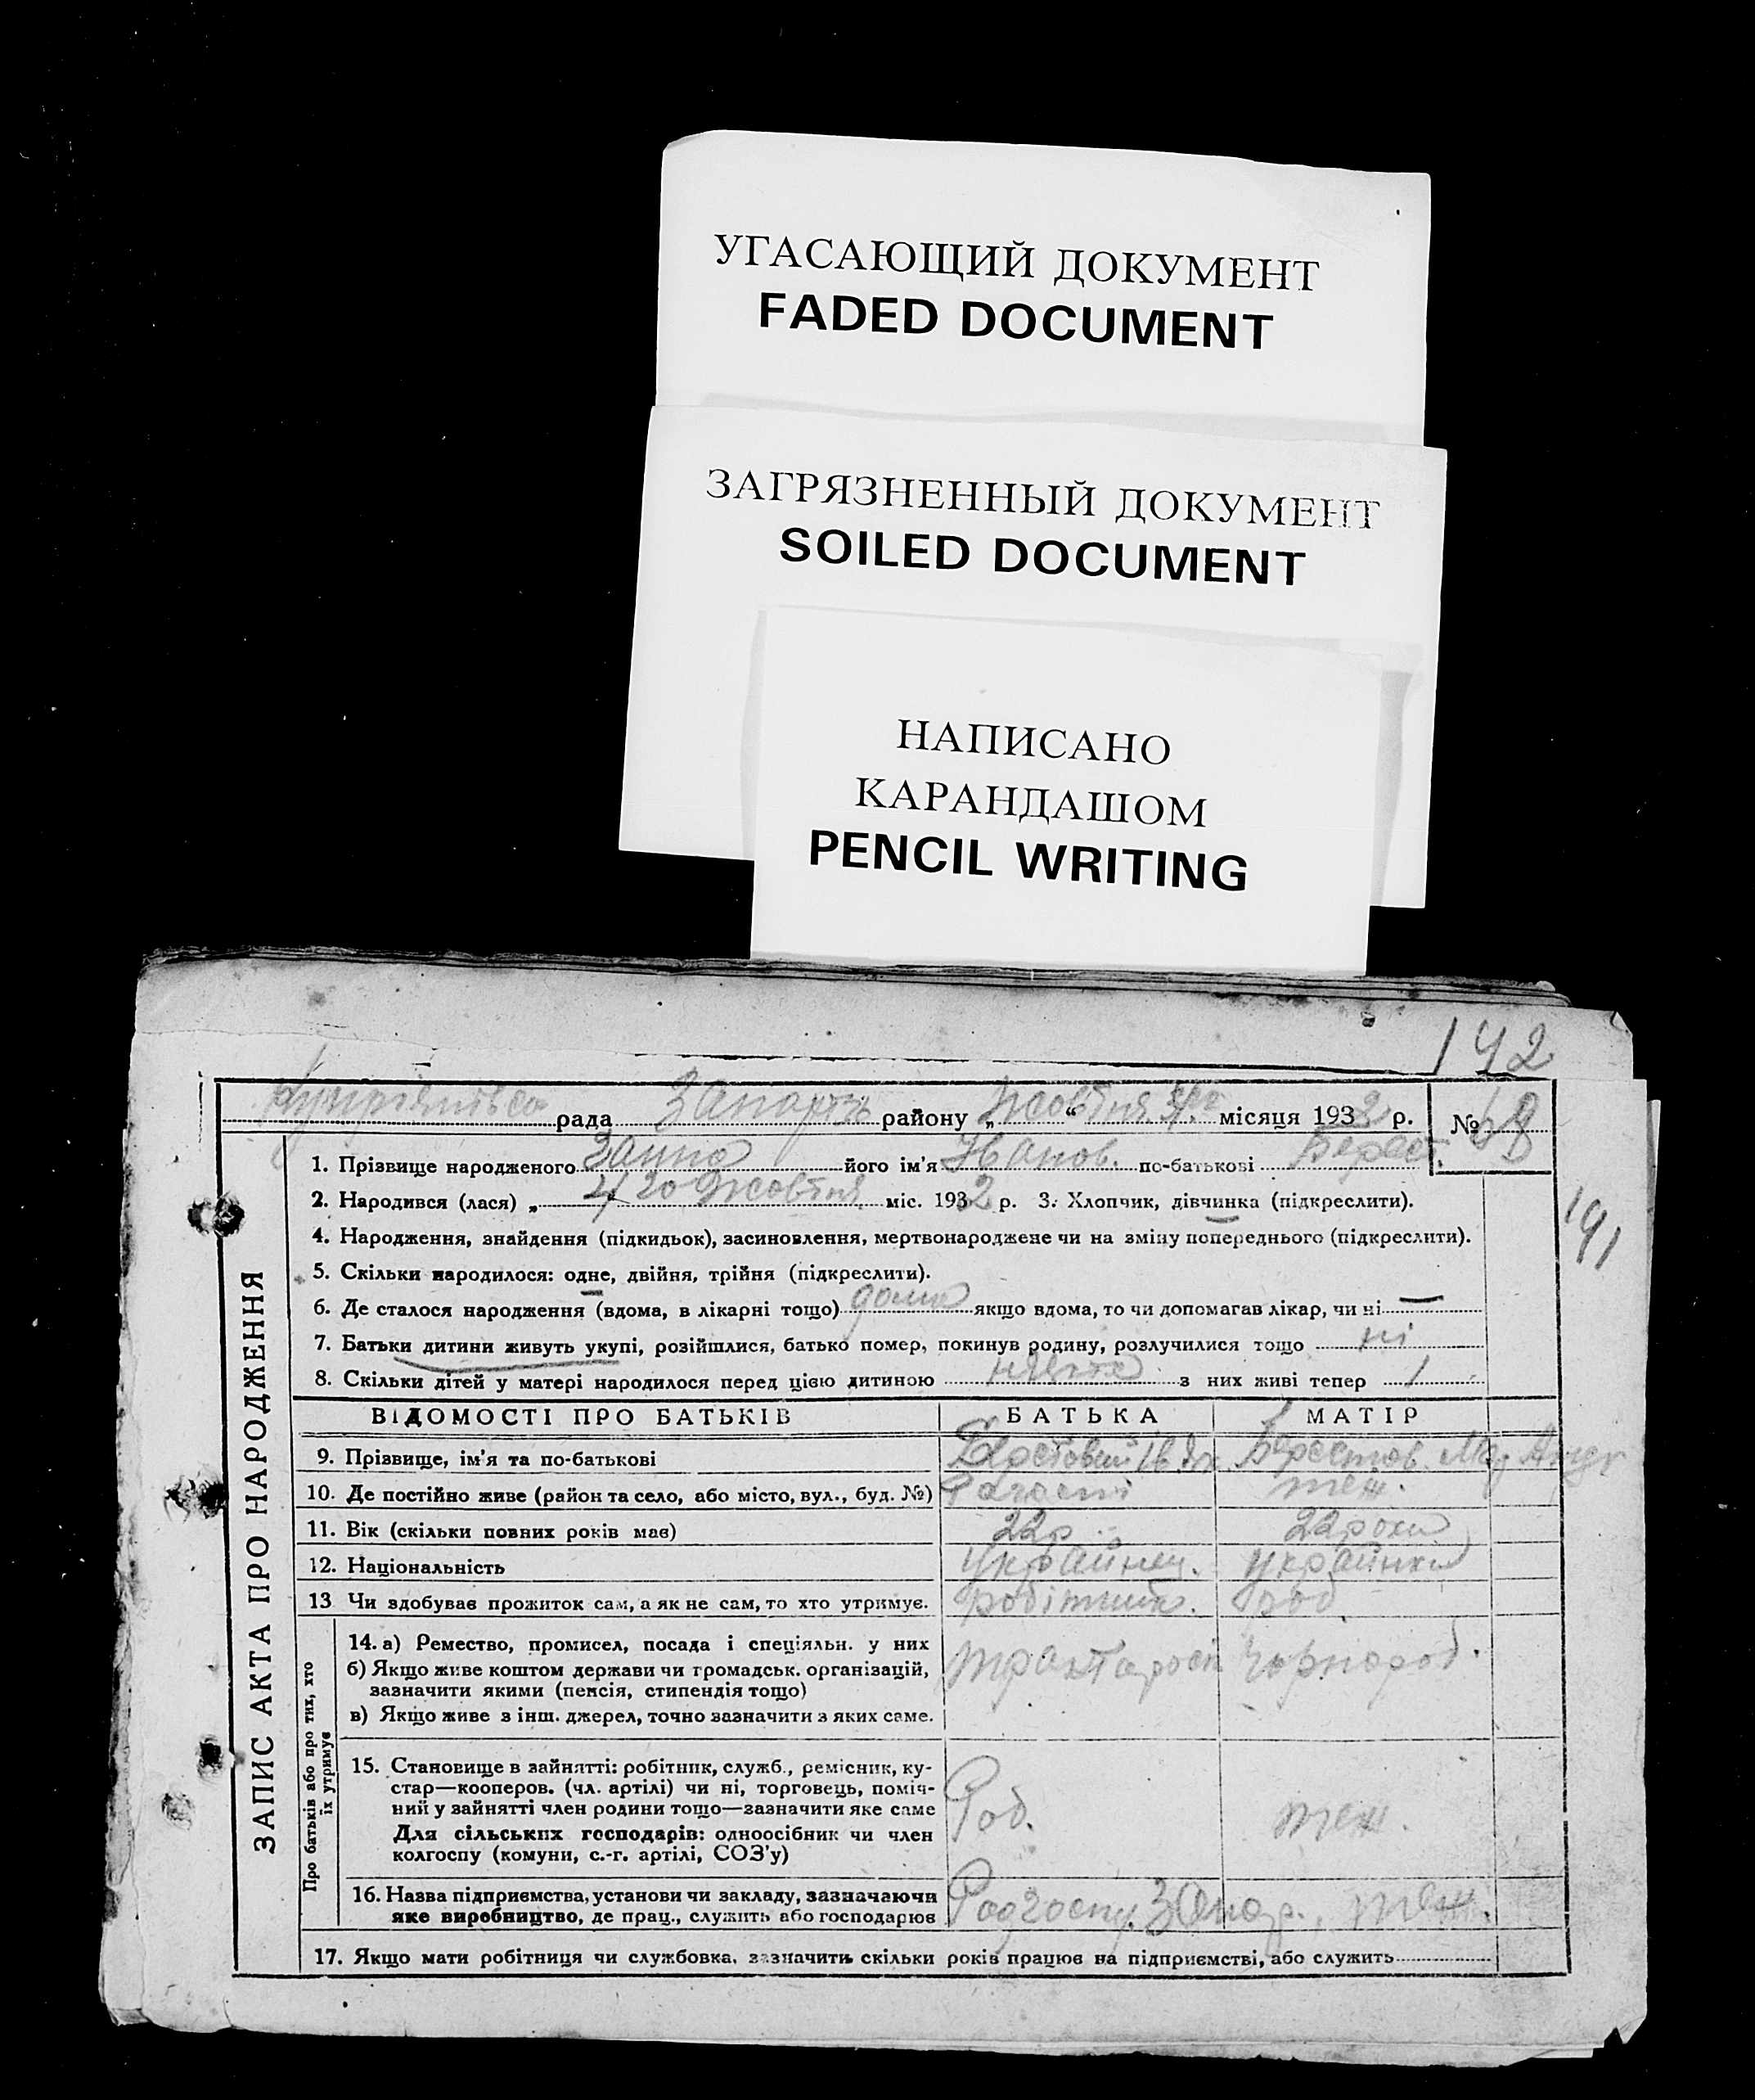 УГАСАЮЩИЙ ДОКУМЕНТ
FADED DOCUMENT
ЗАГРЯЗНЕННЫЙ ДОКУМЕНТ
SOILED DOCUMENT
НАПИСАНО
КАРАНДАШОМ
PENCIL WRITING
142
рада Запоріж району „ Жовтня “ місяця 1932 р. № 68
1. Прізвище народженого Ганна його ім'я Іванов. по-батькові Берест.
2. Народився (лася) „ 4го Жовтня міс. 1932 р. 3. Хлопчик, дівчинка (підкреслити).
191
4. Народження, знайдення (підкидьок), засиновлення, мертвонароджене чи на зміну попереднього (підкреслити).
5. Скільки народилося: одне, двійня, трійня (підкреслити).
6. Де сталося народження (вдома, в лікарні тощо) дома якщо вдома, то чи допомагав лікар, чи ні —
7. Батьки дитини живуть укупі, розійшлися, батько помер, покинув родину, розлучилися тощо ні
8. Скільки дітей у матері народилося перед цією дитиною з них живі тепер 1
ЗАПИС АКТА ПРО НАРОДЖЕННЯ
ВІДОМОСТІ ПРО БАТЬКІВ БАТЬКА МАТІР
9. Прізвище, ім'я та по-батькові Берестовий Ів. Берестов.
10. Де постійно живе (район та село, або місто, вул., буд. №) теж.
11. Вік (скільки повних років має) 22р 22 роки
12. Національність Українец. українка
13 Чи здобував прожиток сам, а як не сам, то хто утримує. робітник. роб
Про батьків або про тих, хто
їх утримує
14. а) Ремество, промисел, посада і спеціяльн. у них чорнороб.
б) Якщо живе коштом держави чи громадськ. організацій,
зазначити якими (пенсія, стипендія тощо)
в) Якщо живе з інш. джерел, точно зазначити з яких саме.
15. Становище в зайнятті: робітник, служб., ремісник, ку-
стар—кооперов. (чл. артілі) чи ні, торговець, поміч-
ний у зайнятті член родини тощо—зазначити яке саме Роб. теж.
Для сільських господарів: одноосібник чи член
колгоспу (комуни, с.-г. артілі, СОЗ'у)
16. Назва підприємства, установи чи закладу, зазначаючи
яке виробництво, де прац., служить або господарює Запор. теж.
17. Якщо мати робітниця чи службовка, зазначити скільки років працює на підприємстві, або служить